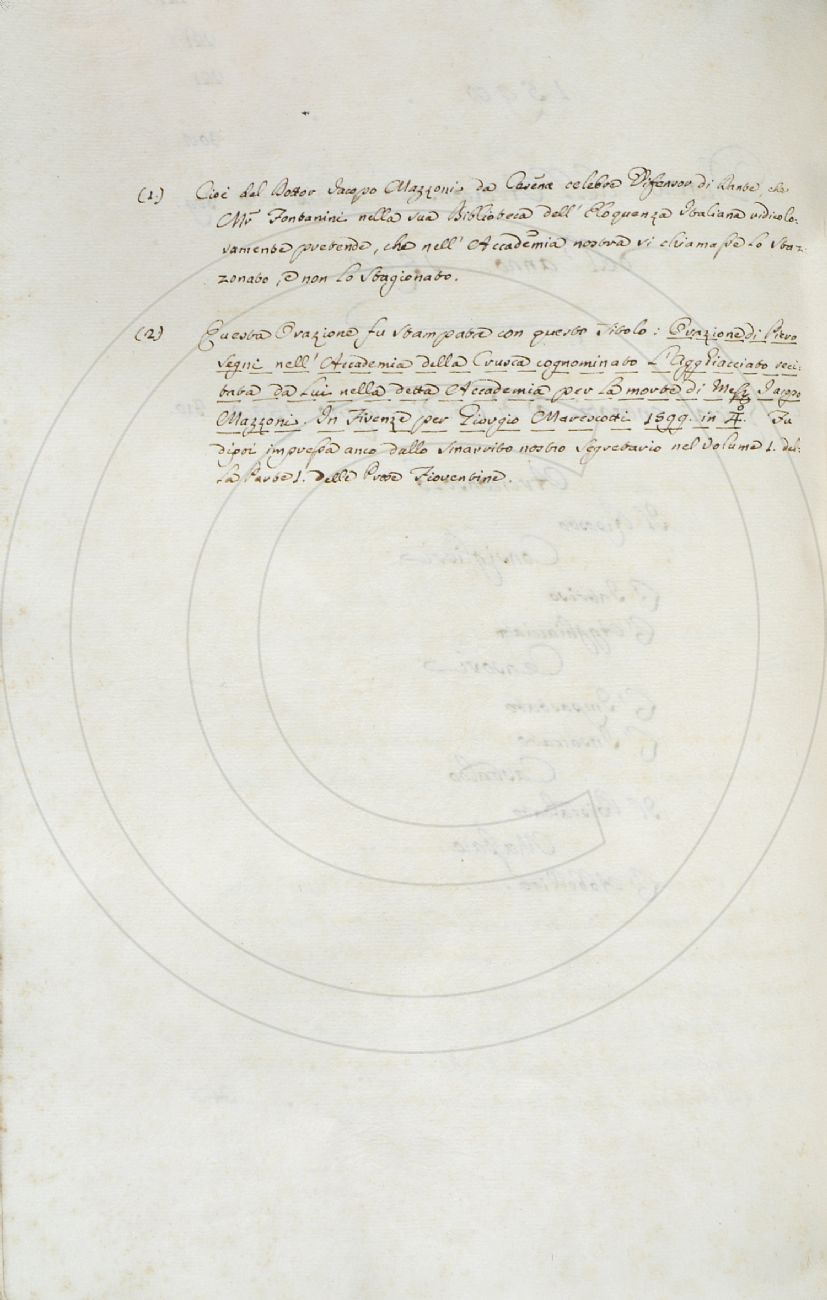 (1.) Cioè del Dottor Jacopo Mazzoni da Cesena celebre Difensor di Dante, che
Mr. Fontanini nella sua Biblioteca dell' Eloquenza Italiana ridicolo-
samente pretende, che nell' Accademia nostra si chiamasse lo Staz-
zonato, e non lo Stagionato.
(2) Questa Orazione fu stampata con questo Titolo: Orazione di Piero
Segni nell' Accademia della Crusca cognominato L'Agghiacciato reci-
tata da Lui nella detta Accademia per la morte di Mess. Jacopo
Mazzoni. In Firenze per Giorgio Marescotti 1599. in 4.o Fu
dipoi impressa anco dallo Smarrito nostro Segretario nel Volume 1. del-
la Parte 1. delle Prose Fiorentine.